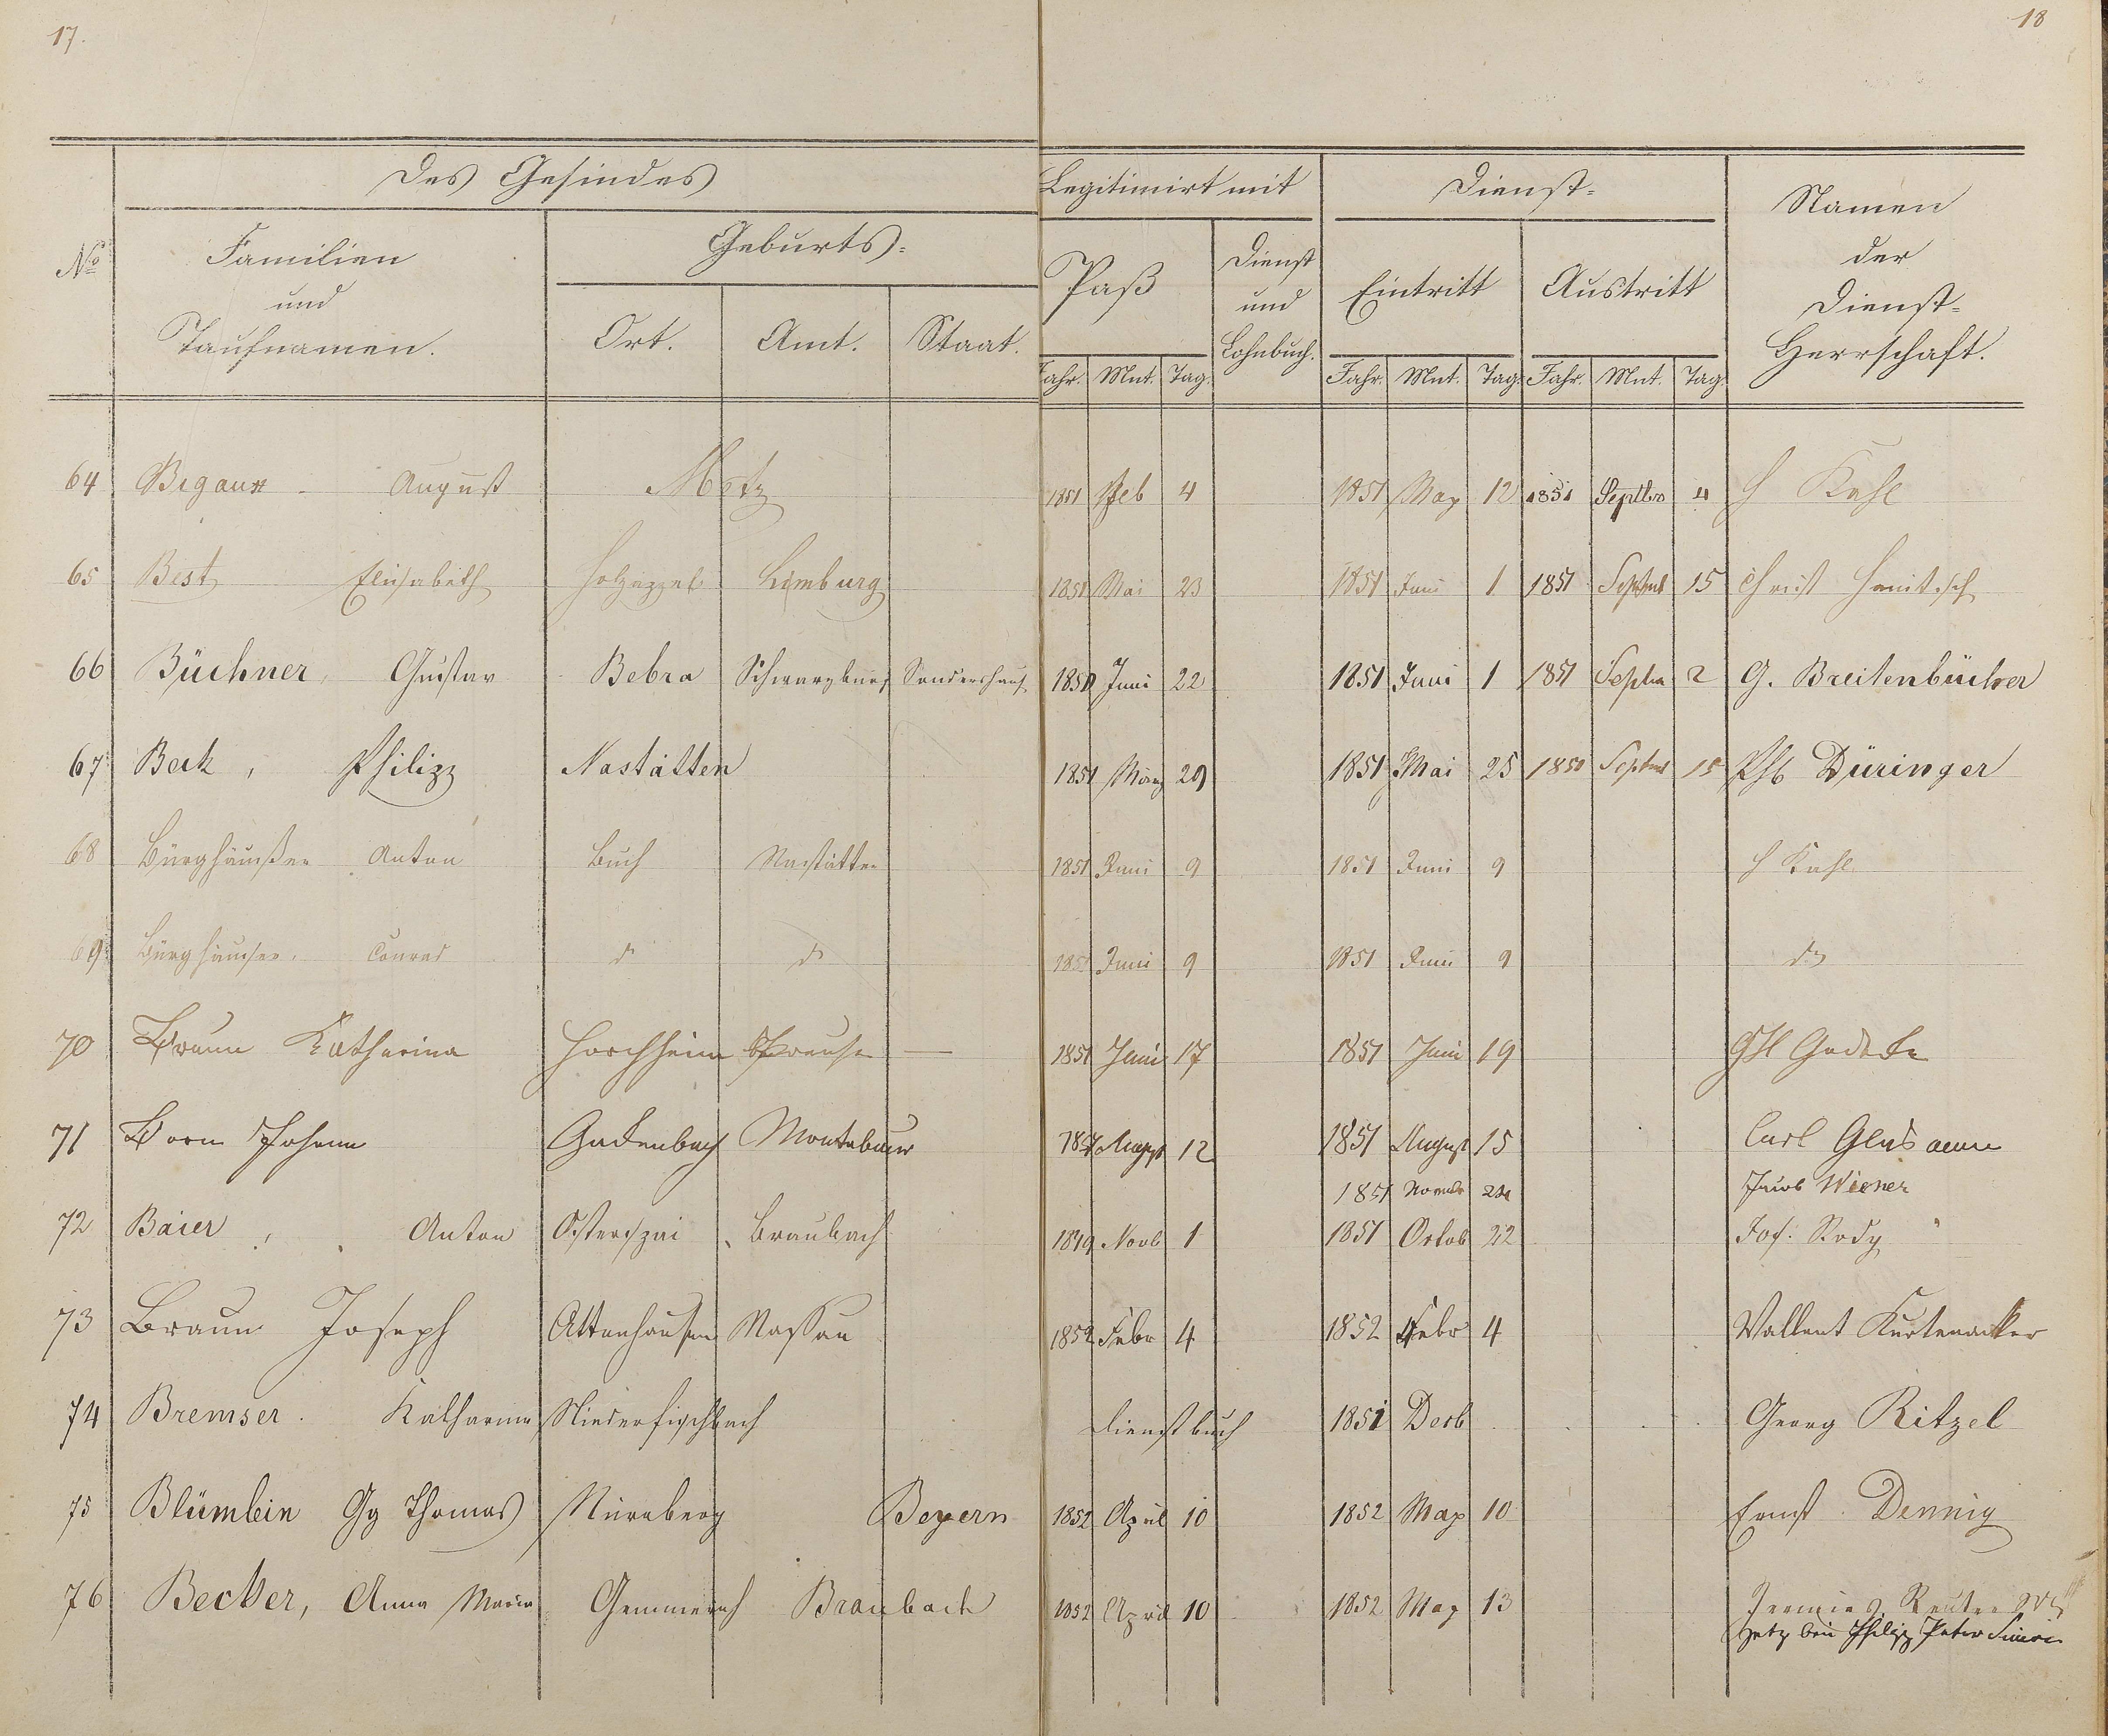 17.
18
Des Gesindes
Legitimirt mit
Dienst-
Namen der Dienst-Herrschaft.
No
Familien und Taufnamen.
Geburts-
Ort. Amt. Staat.
Paß
Dienst und Lohnbuch.
Eintritt
Austritt
Jahr. Mnt. Tag.
Jahr. Mnt. Tag. Jahr. Mnt. Tag.
64 August Metz 1851 Feb 4 1851 May 12 1851 Septbr 4
65 Best Elisabeth Holzappel Limburg 1851 Mai 23 1851 Juni 1 1851 Septmb 15 Christ
66 Büchner, Gustav Bebra Schwarzburg Sondershaus 1850 Juni 22 1851 Juni 1 1851 Septbr 2 G. Breitenbücher
67 Beck, Philipp Nastätten 1851 März 29 1851 Mai 25 1851 Septmb 15 Phl Düringer
68 Burghäußer Anton Buch Nastätten 1851 Juni 9 1851 Juni 9
69 Burghäuser. Conrad do do 1851 Juni 9 1851 Juni 9 do
70 Braun Katharina Horchheim Preußen — 1851 Juni 17 1851 Juni 19
71 Born Johann Gackenbach Montabaur 1851 August 12 1851 August 15 Carl
1851 Novmbr 24 Jacob Wiener
72 Baier, Anton Osterspai Braubach 1849 Novb 1 1851 Octob 22 Jos: Rody
73 Braun Joseph Attenhausen Nassau 1852 Febr 4 1852 Febr 4 Vallent Kurtenacker
74 Bremser. Katharina Niederfischbach Dienstbuch 1851 Decb Georg Ritzel
75 Blümlein Gg Thomas Nürnberg Beyern 1852 April 10 1852 May 10 Ernst Dennig
76 Becker, Anna Maria Gemmerich Braubach 1852 April 10 1852 May 13 Reuter
Jetz bei Philipp Peter